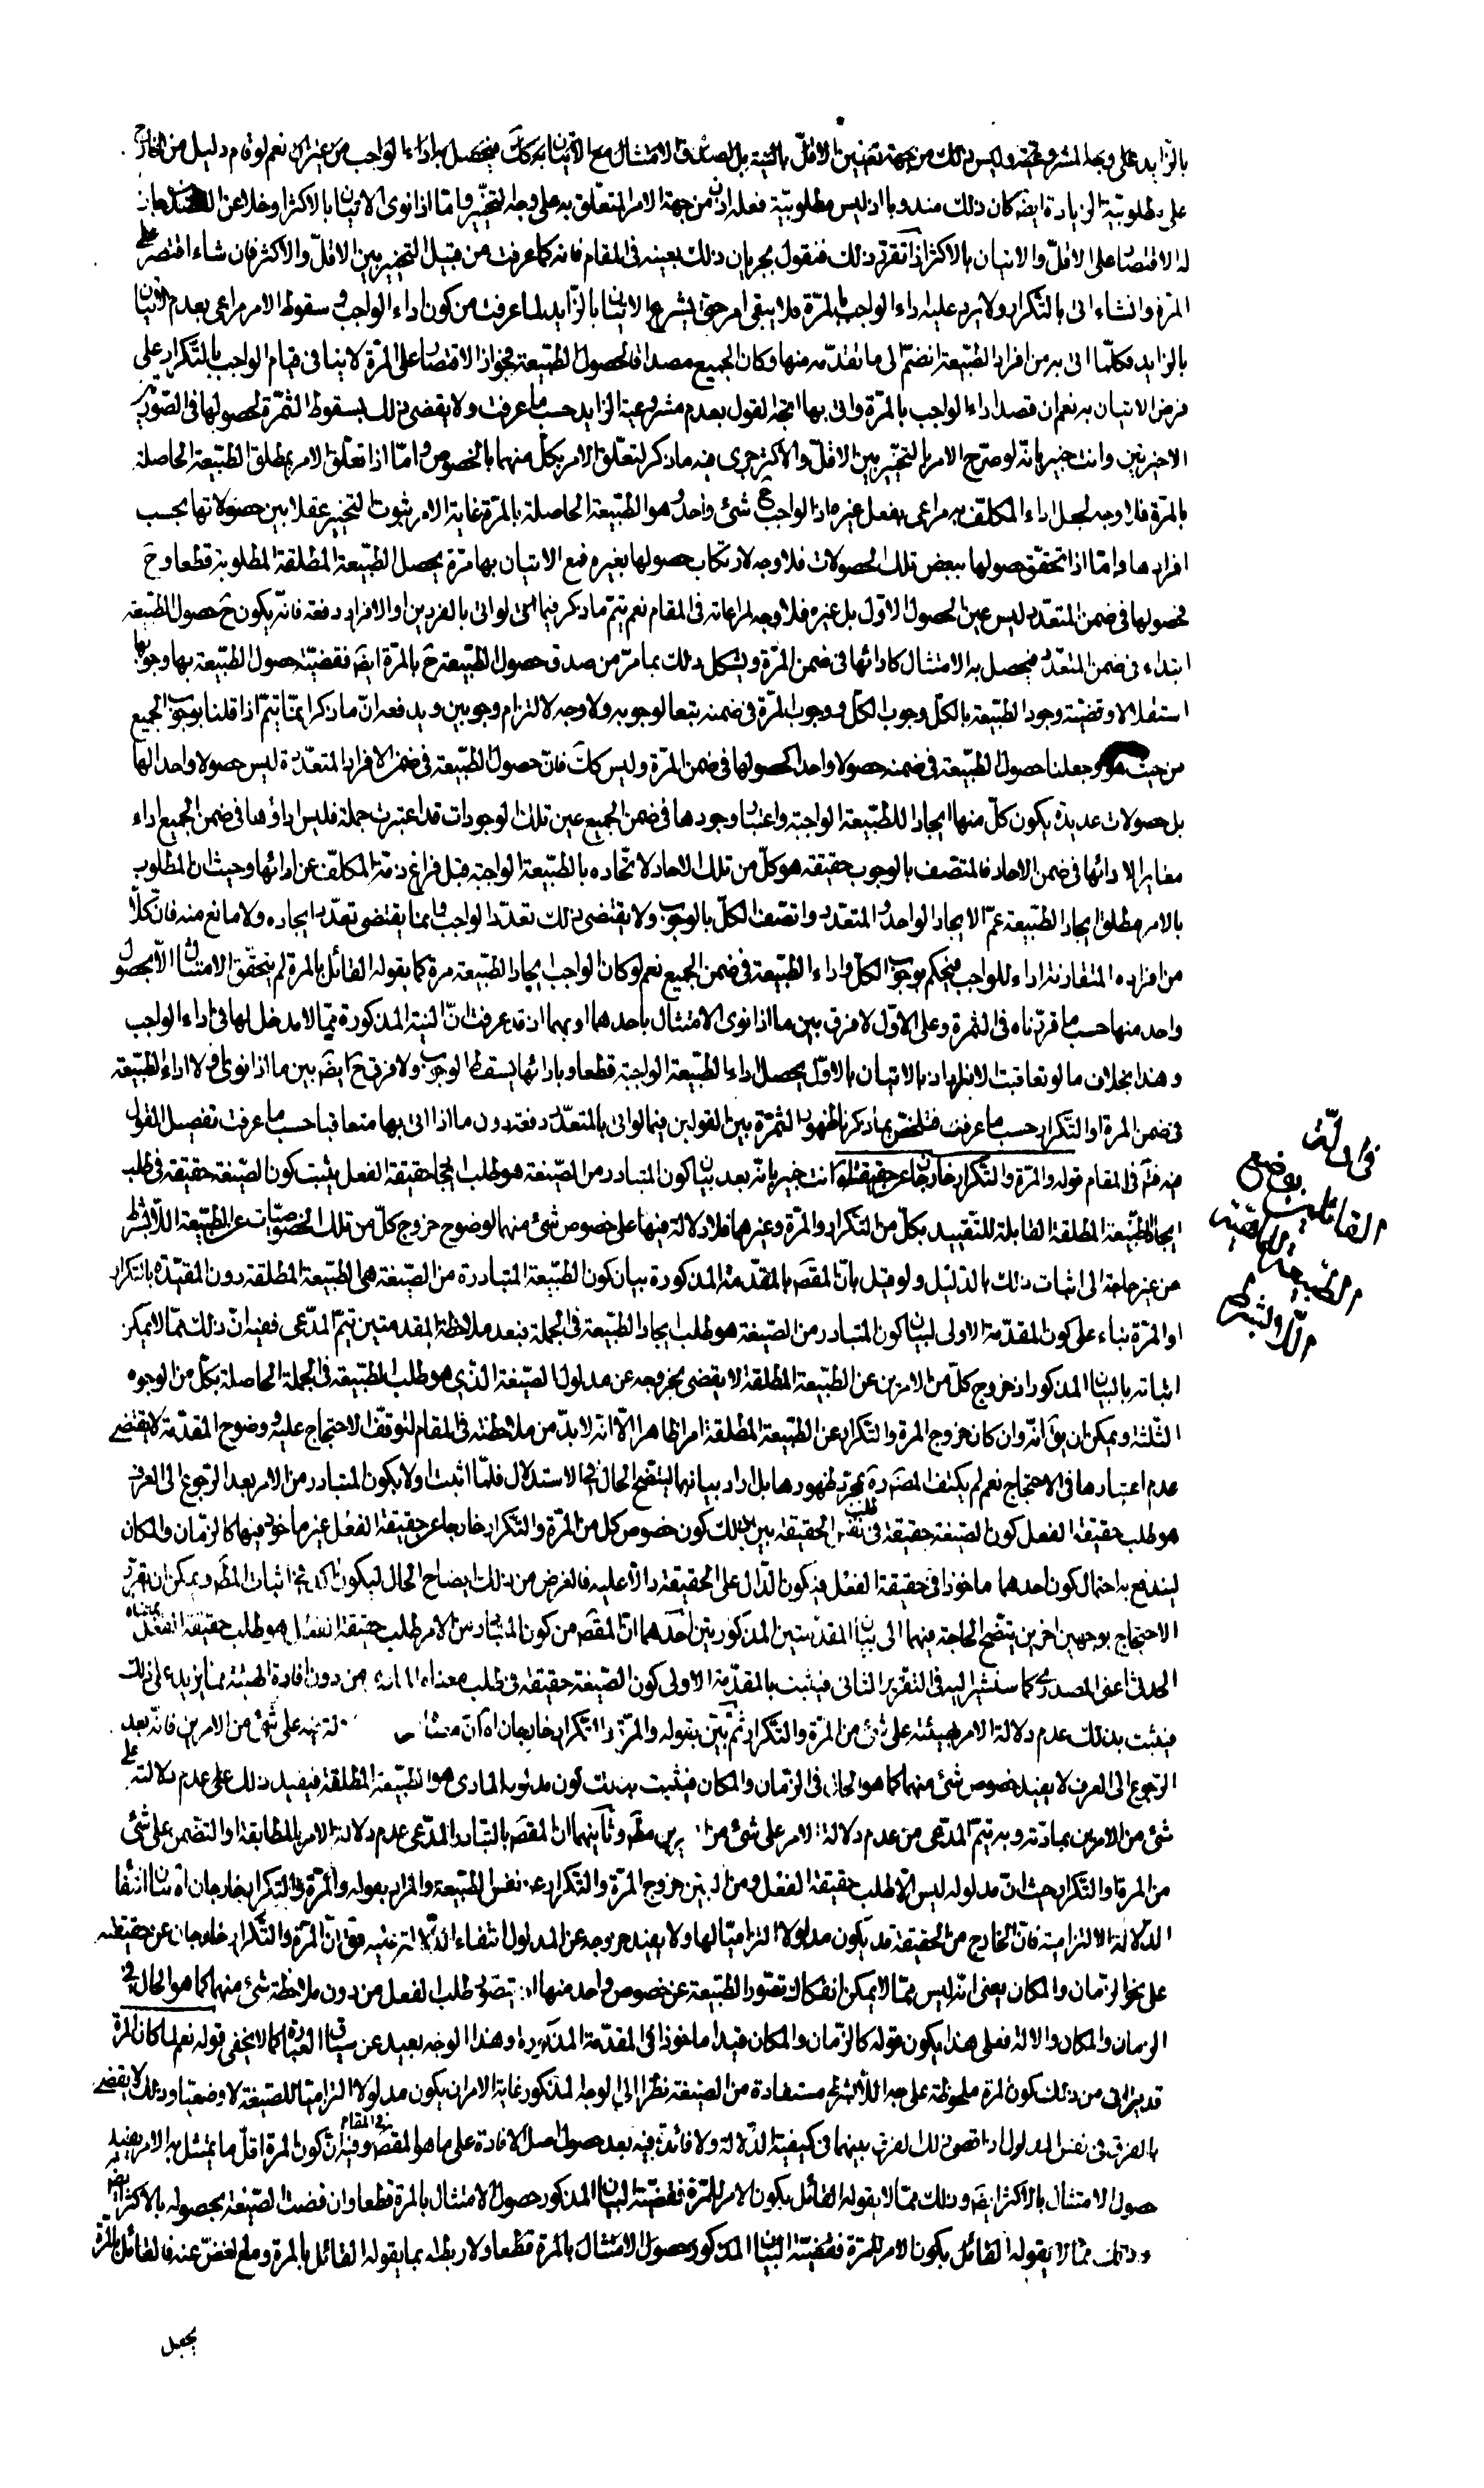 بالزايد على وجه المشروعية وليس ذلك من جهة تعيين الاقل بالنية بل لصدق الامتثال مع الاتيان به كك فيحصل به اداء الواجب من غيران نعم لو قام دليل من الخارج
على مطلوبية الزيادة ايضا كان ذلك مندوبا اذ ليس مطلوبية فعله اذن من جهة الامر المتعلق به على وجه التخيير واما اذا نوى الاتيان بالاكثر او خلا عن القصد جاز
له الاقتصار على الاقل والاتيان بالاكثر اذا تقرر ذلك فنقول بجريان ذلك بعينه فى المقام فانه كما عرفت من قبيل التخيير بين الاقل والاكثر فان شاء اقتصر على
المرة وان شاء اتى بالتكرار ولا يرد عليه اداء الواجب بالمرة فلا يبقى امر حتى يشرع الاتيان بالزايد لما عرفت من كون اداء الواجب وسقوط الامر مراعى بعدم الاتيان
بالزايد فكلما اتى به من افراد الطبيعة انضم الى ما تقدمه منها وكان الجميع مصداقا لحصول الطبيعة فجواز الاقتصار على المرة لا ينافى قيام الواجب بالتكرار على
فرض الاتيان به نعم ان قصد اداء الواجب بالمرة واتى بها اتجه القول بعدم مشروعية الزايد حسب ما عرفت ولا يقضى ذلك بسقوط الثمرة لحصولها فى الصورتين
الاخيرتين وانت خبير بانه لو صرح الامر بالتخيير بين الاقل والاكثر جرى فيه ما ذكر لتعلق الامر بكل منهما بالخصوص واما اذا تعلق الامر بمطلق الطبيعة الحاصلة
بالمرة فلا وجه لجعل اداء المكلف به مراعى بفعل غيره اذ الواجب ح شئ واحد هو الطبيعة الحاصلة بالمرة غاية الامر ثبوت التخيير عقلا بين حصولاتها بحسب
افرادها واما اذا تحقق حصولها ببعض تلك الحصولات فلا وجه لارتكاب حصولها بغيره فمع الاتيان بها مرة يحصل الطبيعة المطلقة المطلوبة قطعا وح
فحصولها فى ضمن المتعدد ليس عين الحصول الاول بل غيره فلا وجه لمراعاته فى المقام نعم يتم ما ذكر فيما لو اتى بالفردين او الافراد دفعة فانه يكون ح حصول الطبيعة
ابتداء فى ضمن المتعدد فيحصل به الامتثال كادائها فى ضمن المرة ويشكل ذلك بما مر من صدق حصول الطبيعة ح بالمرة ايضا فقضيته حصول الطبيعة بها وجوبها
استقلالا وقضية وجود الطبيعة بالكل وجوب الكل ووجوب المرة فى ضمنه تبعا لوجوبه ولا وجه لالتزام وجوبين ويدفعه ان ما ذكر انما يتم اذا قلنا بوجوب الجميع
من حيث هو وجعلنا حصول الطبيعة فى ضمنه حصولا واحدا كحصولها فى ضمن المرة وليس كك فان حصول الطبيعة فى ضمن الافراد المتعددة ليس حصولا واحدا لها
بل حصولات عديدة يكون كل منها ايجادا للطبيعة الواجبة واعتبار وجودها فى ضمن الجميع عين تلك الوجودات قد اعتبرت جملة فليس اداؤها فى ضمن الجميع اداء
مغايرا لادائها فى ضمن الاحاد فالمتصف بالوجوب حقيقة هو كل من تلك الاحاد لاتحاده بالطبيعة الواجبة قبل فراغ ذمة المكلف عن ادائها وحيث ان المطلوب
بالامر مطلق ايجاد الطبيعة عم الايجاد الواحد والمتعدد واتصف الكل بالوجوب ولا يقتضى ذلك تعدد الواجب وانما يقتضى تعدد ايجاده ولا مانع منه فان كلا
من افراده المتقارنة اداء للواجب فيحكم بوجوب الكل واداء الطبيعة فى ضمن الجميع نعم لو كان الواجب ايجاد الطبيعة مرة كما يقوله القائل بالمرة لم يتحقق الامتثال الا بحصول
واحد منها حسب ما قررناه فى الثمرة وعلى الاول لا فرق بين ما اذا نوى الامتثال باحدهما او بهما اذ قد عرفت ان النية المذكورة مما لا مدخل لها فى اداء الواجب
وهذا بخلاف ما لو تعاقبت الافراد اذ بالاتيان بالاول يحصل اداء الطبيعة الواجبة قطعا وبادائها يسقط الوجوب ولا فرق ح ايضا بين ما اذا نوى اولا اداء الطبيعة
فى ضمن المرة او التكرار حسب ما عرفت فتلخص بما ذكرنا ظهور الثمرة بين القولين فيما لو اتى بالمتعدد دفعة دون ما اذا اتى بها متعاقبا حسب ما عرفت تفصيل القول
فيه فتم فى المقام قوله والمرة والتكرار خارجان عن حقيقته انت خبير بانه بعد بيان كون المتبادر من الصيغة هو طلب ايجاد حقيقة الفعل يثبت كون الصيغة حقيقة فى طلب
ايجاد الطبيعة المطلقة القابلة للتقييد بكل من التكرار والمرة وغيرها فلا دلالة فيها على خصوص شئ منهما لوضوح خروج كل من تلك الخصوصيات عن الطبيعة اللابشرط
من غير حاجة الى اثبات ذلك بالدليل ولو قيل بان المقصود بالمقدمة المذكورة بيان كون الطبيعة المتبادرة من الصيغة هى الطبيعة المطلقة دون المقيدة بالتكرار
او المرة بناء على كون المقدمة الاولى لبيان كون المتبادر من الصيغة هو طلب ايجاد الطبيعة فى الجملة فبعد ملاحظة المقدمتين يتم المدعى ففيه ان ذلك مما لا يمكن
اثباته بالبيان المذكور اذ خروج كل من الامرين عن الطبيعة المطلقة لا يقضى بخروجه عن مدلول الصيغة الذى هو طلب الطبيعة فى الجملة الحاصلة بكل من الوجوه
الثلثة ويمكن ان يق انه وان كان خروج المرة والتكرار عن الطبيعة المطلقة امرا ظاهرا الا انه لا بد من ملاحظته فى المقام لتوقف الاحتجاج عليه ووضوح المقدمة لا يقتضى
عدم اعتبارها فى الاحتجاج نعم لم يكتف المصنف ره بمجرد ظهورها بل اراد بيانهما ليتضح الحال فى الاستدلال فلما اثبت اولا بكون المتبادر من الامر بعد الرجوع الى العرف
هو طلب حقيقة الفعل كون الصيغة حقيقة فى طلب الحقيقة بين بذلك كون خصوص كل من المرة والتكرار خارجا عن حقيقة الفعل غير ماخوذ فيها كالزمان والمكان
ليندفع به احتمال كون احدهما ماخوذا فى حقيقة الفعل فيكون الدال على الحقيقة دالا عليه فالغرض من ذلك ايضاح الحال ليكون اثبات المط ويمكن ان يقرر
الاحتجاج بوجهين اخرين يتضح الحاجة فيهما الى بيان المقدمتين المذكورتين احدهما ان المقصود من كون المتبادر من الامر طلب حقيقة الفعل هو طلب حقيقة الفعل بمعناه
الحدثى اعنى المصدرى كما سنشير اليه فى التقرير الثانى فيثبت بالمقدمة الاولى كون الصيغة حقيقة فى طلب معناه من دون افادة الهيئة بما يزيد على ذلك
فيثبت بذلك عدم دلالة الامر بهيئته على شئ من المرة والتكرار ثم بين بقوله والمرة والتكرار خارجان اه على شئ من الامرين فانه بعد
الرجوع الى العرف لا يفيد خصوص شئ منهما كما هو الحال فى الزمان والمكان فيثبت بذلك كون مدلوله المادى هو الطبيعة المطلقة فيفيد ذلك على عدم دلالته على
شئ من الامرين بمادته وبه يتم المدعى من عدم دلالة الامر على شئ من مط وثانيهما ان المقصود بالتبادر المدعى عدم دلالة الامر بالمطابقة او التضمن على شئ
من المرة والتكرار حيث ان مدلوله ليس الا طلب حقيقة الفعل ومن البين خروج المرة والتكرار عن نفس الطبيعة والمراد بقوله والمرة والتكرار خارجان اه بيان انتفاء
الدلالة الالتزامية فان الخارج من الحقيقة قد يكون مدلولا التزاميا لها ولا يفيد خروجه عن المدلول انتفاء الدلالة فقوله ان المرة والتكرار خارجان عن حقيقته
على نحو الزمان والمكان يعنى انه ليس مما لا يمكن انفكاك تصور الطبيعة عن خصوص واحد منها اذ يتصور طلب الفعل من دون ملاحظة شئ منهما كما هو الحال فى
الزمان والمكان والالة فعلى هذا يكون قوله كالزمان والمكان قيدا ماخوذا فى المقدمة المذكورة وهذا الوجه بعيد عن سياق العبارة كما لا يخفى قوله نعم لما كان المرة
قد يترائى من ذلك كون المرة ملحوظة على جهة اللابشرط مستفادة من الصيغة نظرا الى الوجه المذكور غاية الامر ان يكون مدلولا التزاميا للصيغة لا وضعيا وذلك لا يقضى
بالفرق فى نفس المدلول اذ اقصى ذلك الفرق بينهما فى كيفية الدلالة ولا فائدة فيه بعد حصول اصل الافادة على ما هو المقصود فى المقام وفيه ان كون المرة اقل ما يمتثل به الامر يفيد
حصول الامتثال بالاكثر ايضا وذلك مما لا يقوله القائل بكون الامر للمرة فقضية البيان المذكور حصول الامتثال بالمرة قطعا وان قضت الصيغة بحصوله بالاكثر ايضا
وذلك مما لا يقوله القائل بكون الامر للمرة فقضية البيان المذكور حصول الامتثال بالمرة قطعا ولا ربط له بما يقوله القائل بالمرة ومع الغض عنه فالقائل بالمرة
يجعل
فى ادلة
القائلين بوضع
الطبيعة
اللابشرط